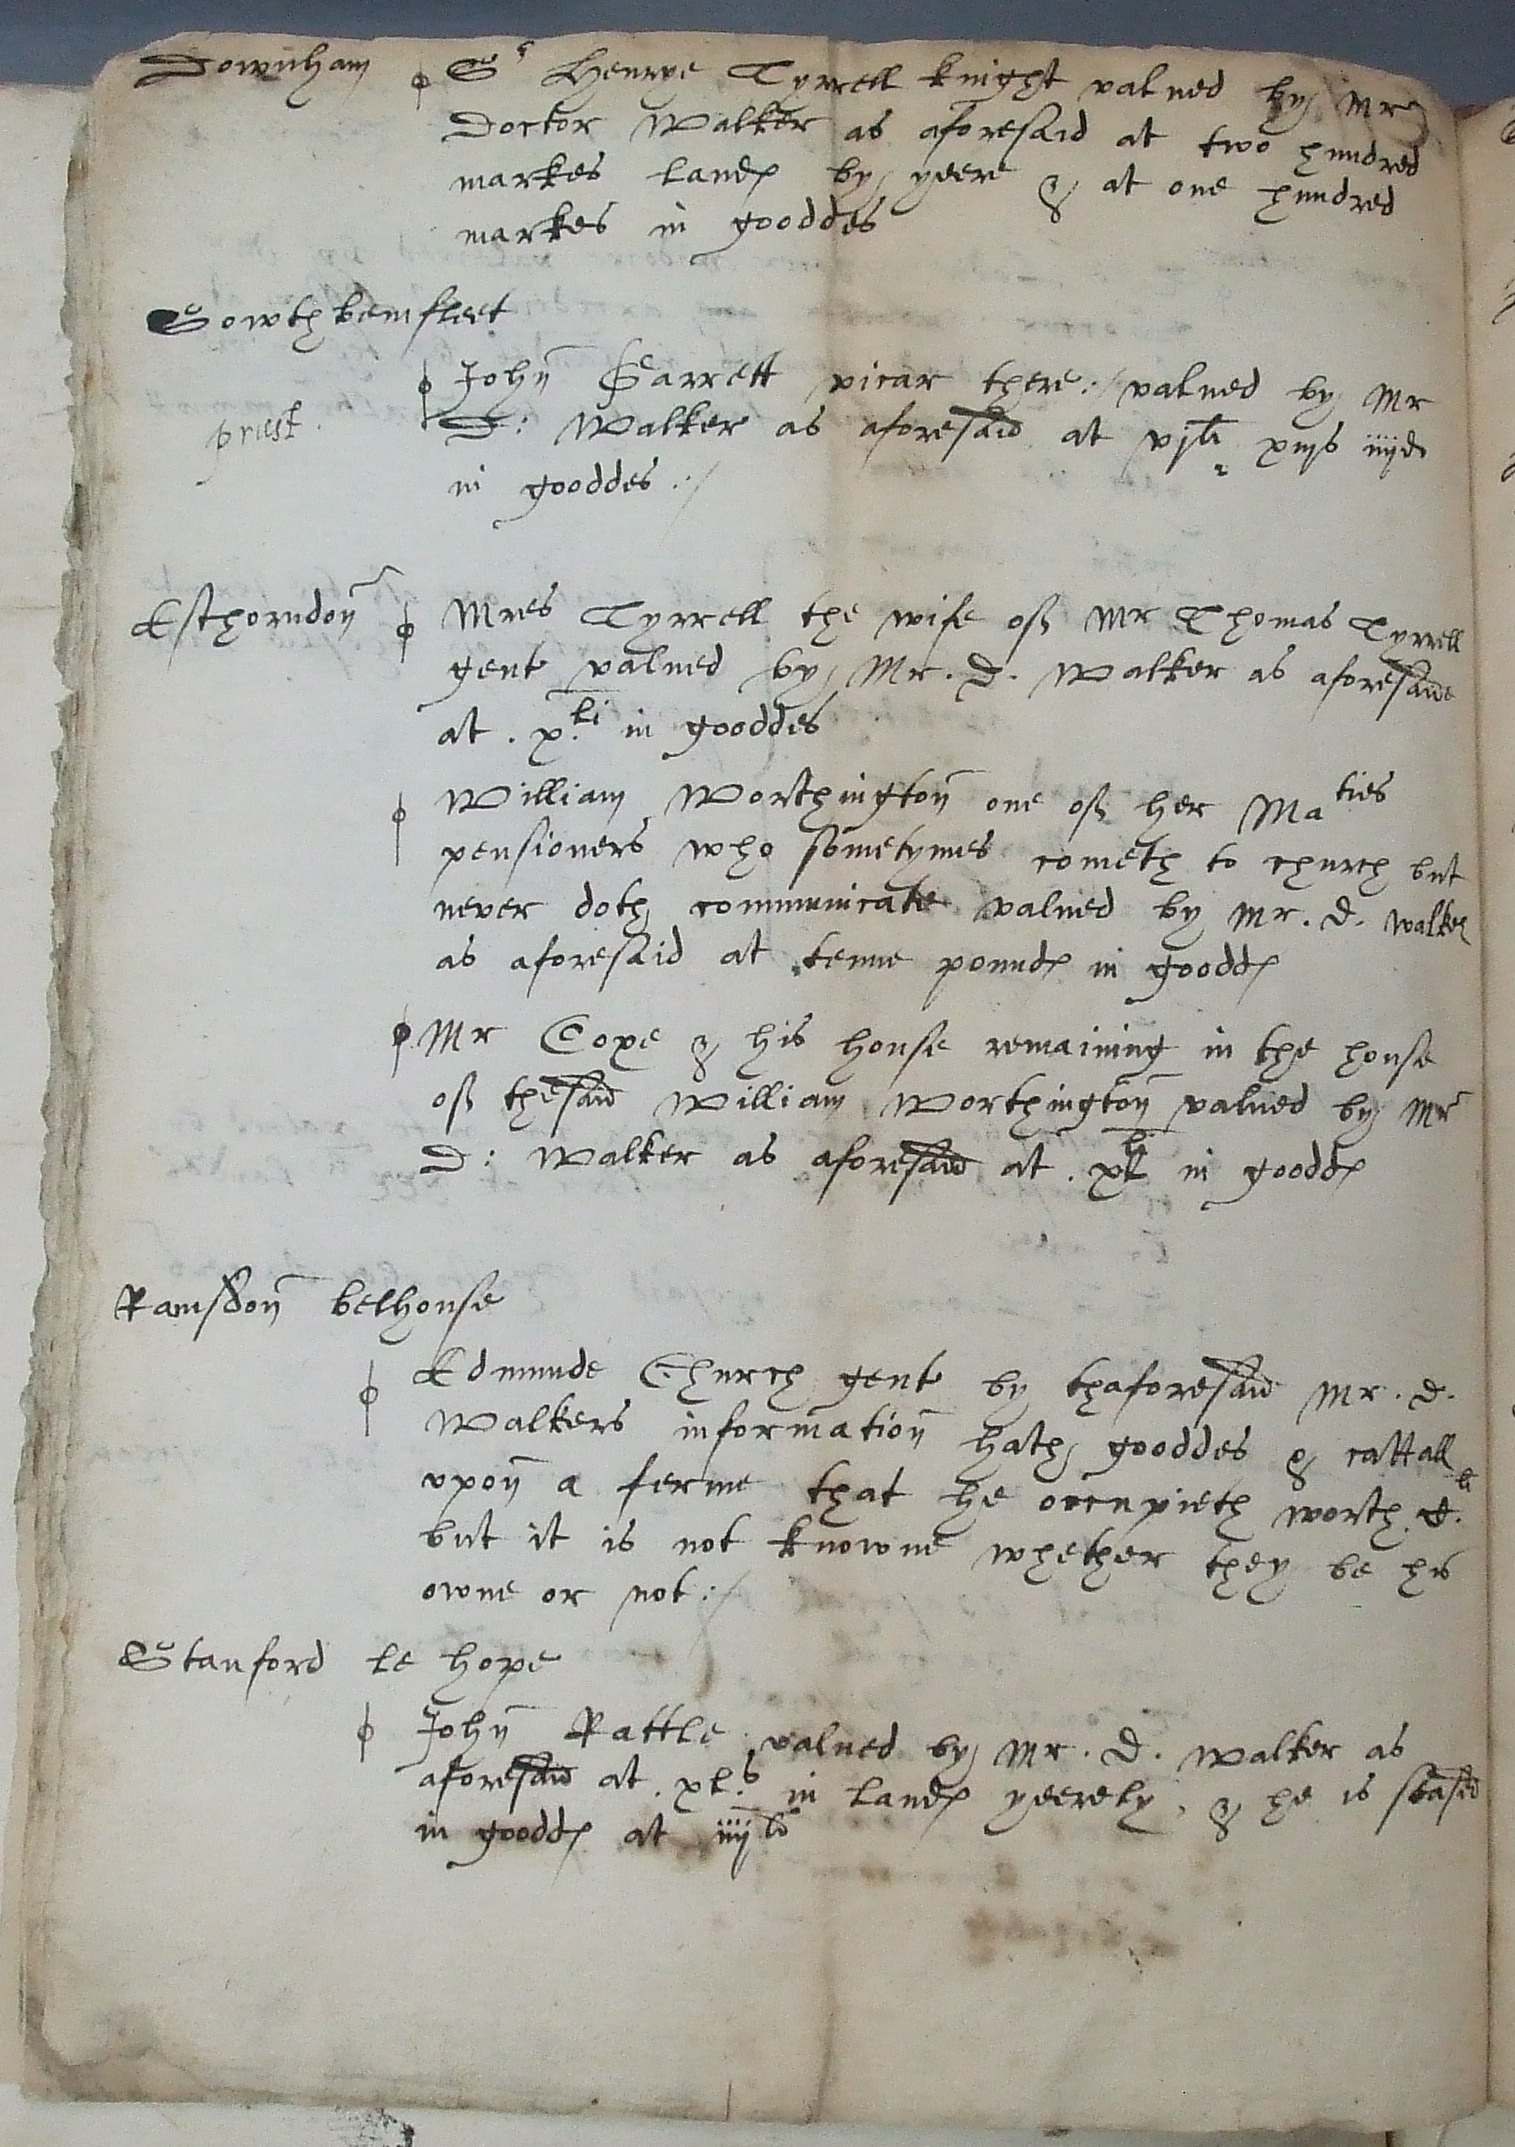 Downham Sr Henrye Tyrrell knight valued by Mr
Doctor Walker as aforesaid at two hundred
markes landes by yeere & at one hundred
markes in gooddes
Sowthbemfleet
John Garrett vicar there :/ valued by Mr
priest. D: Walker as aforesaid at vjli xiijs iiijd
in gooddes :/
Esthorndon Mres Tyrrell the wife off Mr Thomas Tyrrell
gent valued by Mr. D. Walker as aforesaide
at . x.li in gooddes
William Worthington one off her Maties
pensioners who sometymes cometh to church but
never doth communicate valued by Mr. D. Walker
as aforesaid at tenne poundes in gooddes
Mr Cope & his house remaining in the house
off thesaid William Worthington valued by Mr
D: Walker as aforesaid at . xli in gooddes
Ramsdon belhouse
Edmunde Church gent by thaforesaid Mr. D.
Walkers information hath gooddes & cattall
upon a ferme that he occupieth worth . C.li
but it is not knowne whether they be his
owne or not :/
Stanford le hope
John Rattle valued by Mr. D. Walker as
aforesaid at . xl.s in landes yeerely . & he is seased
in gooddes at iiijli